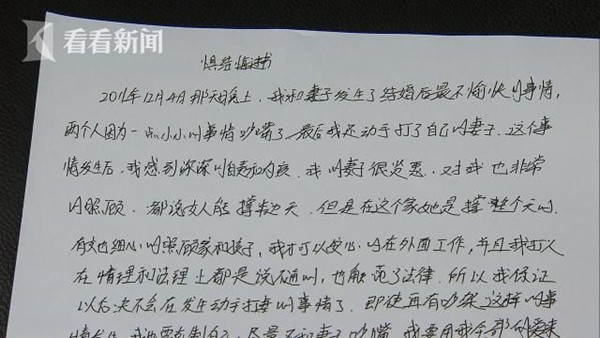 看看新闻
悔过书
2011年12月4日那天晚上，我和妻子发生了结婚后最不愉快的事情，
两个人因为一点小小的事情吵嘴了，最后我还动手打了自己的妻子。这个事
情发生后，我感到深深的自责和内疚。我的妻子很贤惠，对我也非常
的照顾。都说女人能撑半边天，但是在这个家她是撑整个天的，
有她细心的照顾家和孩子，我才可以安心的在外面工作，并且我打人
在情理和法理上都是说不通的，也触范了法律。所以我保证
以后决不会在发生动手打妻的事情了。即使再有吵架这样的事
情发生，我也要克制自己，尽量不和妻子吵嘴，我要用我全部的爱来